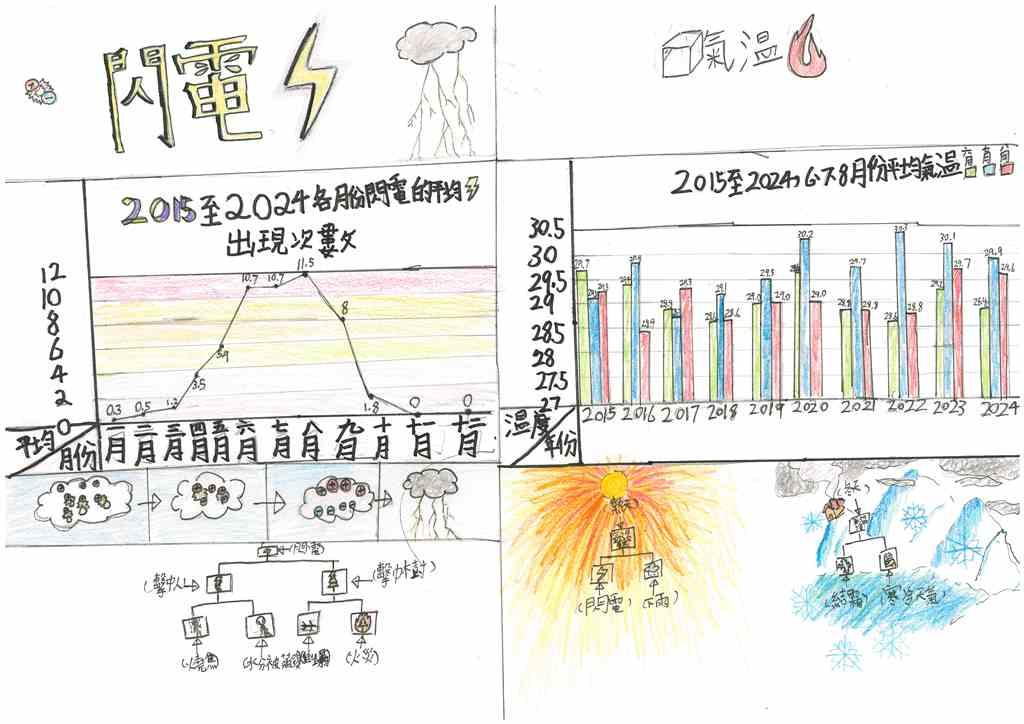 閃電
2015至2024各月份閃電的平均
出現次數
12
10
8
6
4
2
0
0.3 0.5 1.2 3.5 5.9 10.7 10.7 11.5 8 1.8 0 0
平均 月份
一月 二月 三月 四月 五月 六月 七月 八月 九月 十月 十一月 十二月
閃電
(擊中人)
(擊中樹)
(燒傷)
(火災)
氣溫
2015至2024,6、7、8月份平均氣溫
30.5
30
29.5
29
28.5
28
27.5
27
29.7
28.9 29.3
28.6 29.1 28.6
29.5 29.0
30.2 29.0
28.8 29.7 28.8
28.6 28.8
30.1 29.7
28.4 29.9 29.6
溫度 年份
2015 2016 2017 2018 2019 2020 2021 2022 2023 2024
(閃電) (下雨)
(冬天)
(結霜) (寒冷天氣)